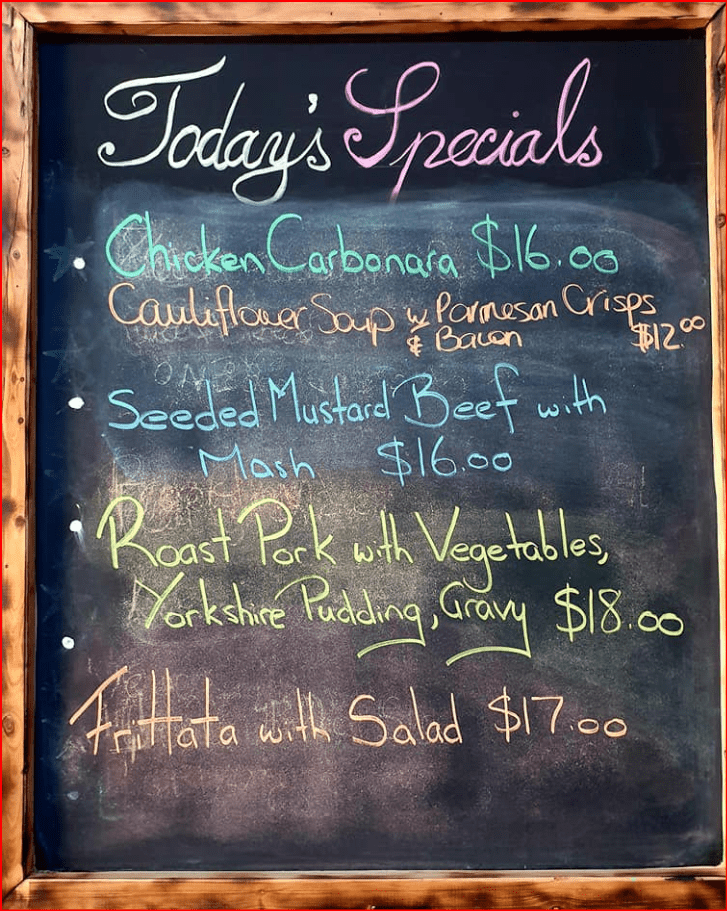 Today's Specials
Chicken Carbonara $16.00
Cauliflower Soup w Parmesan Crisps
& Bacon $12.00
Seeded Mustard Beef with
Mash $16.00
Roast Pork with Vegetables,
Yorkshire Pudding, Gravy $18.00
Frittata with Salad $17.00